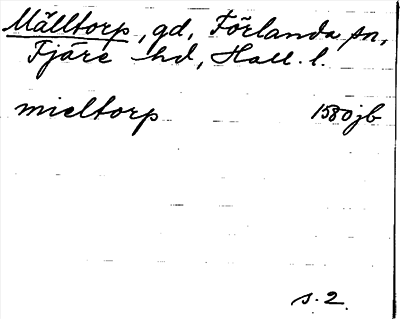 Mälltorp, gd, Förlanda sn,
Fjäre hd, Hall. l.
mieltorp 1580 jb
s. 2